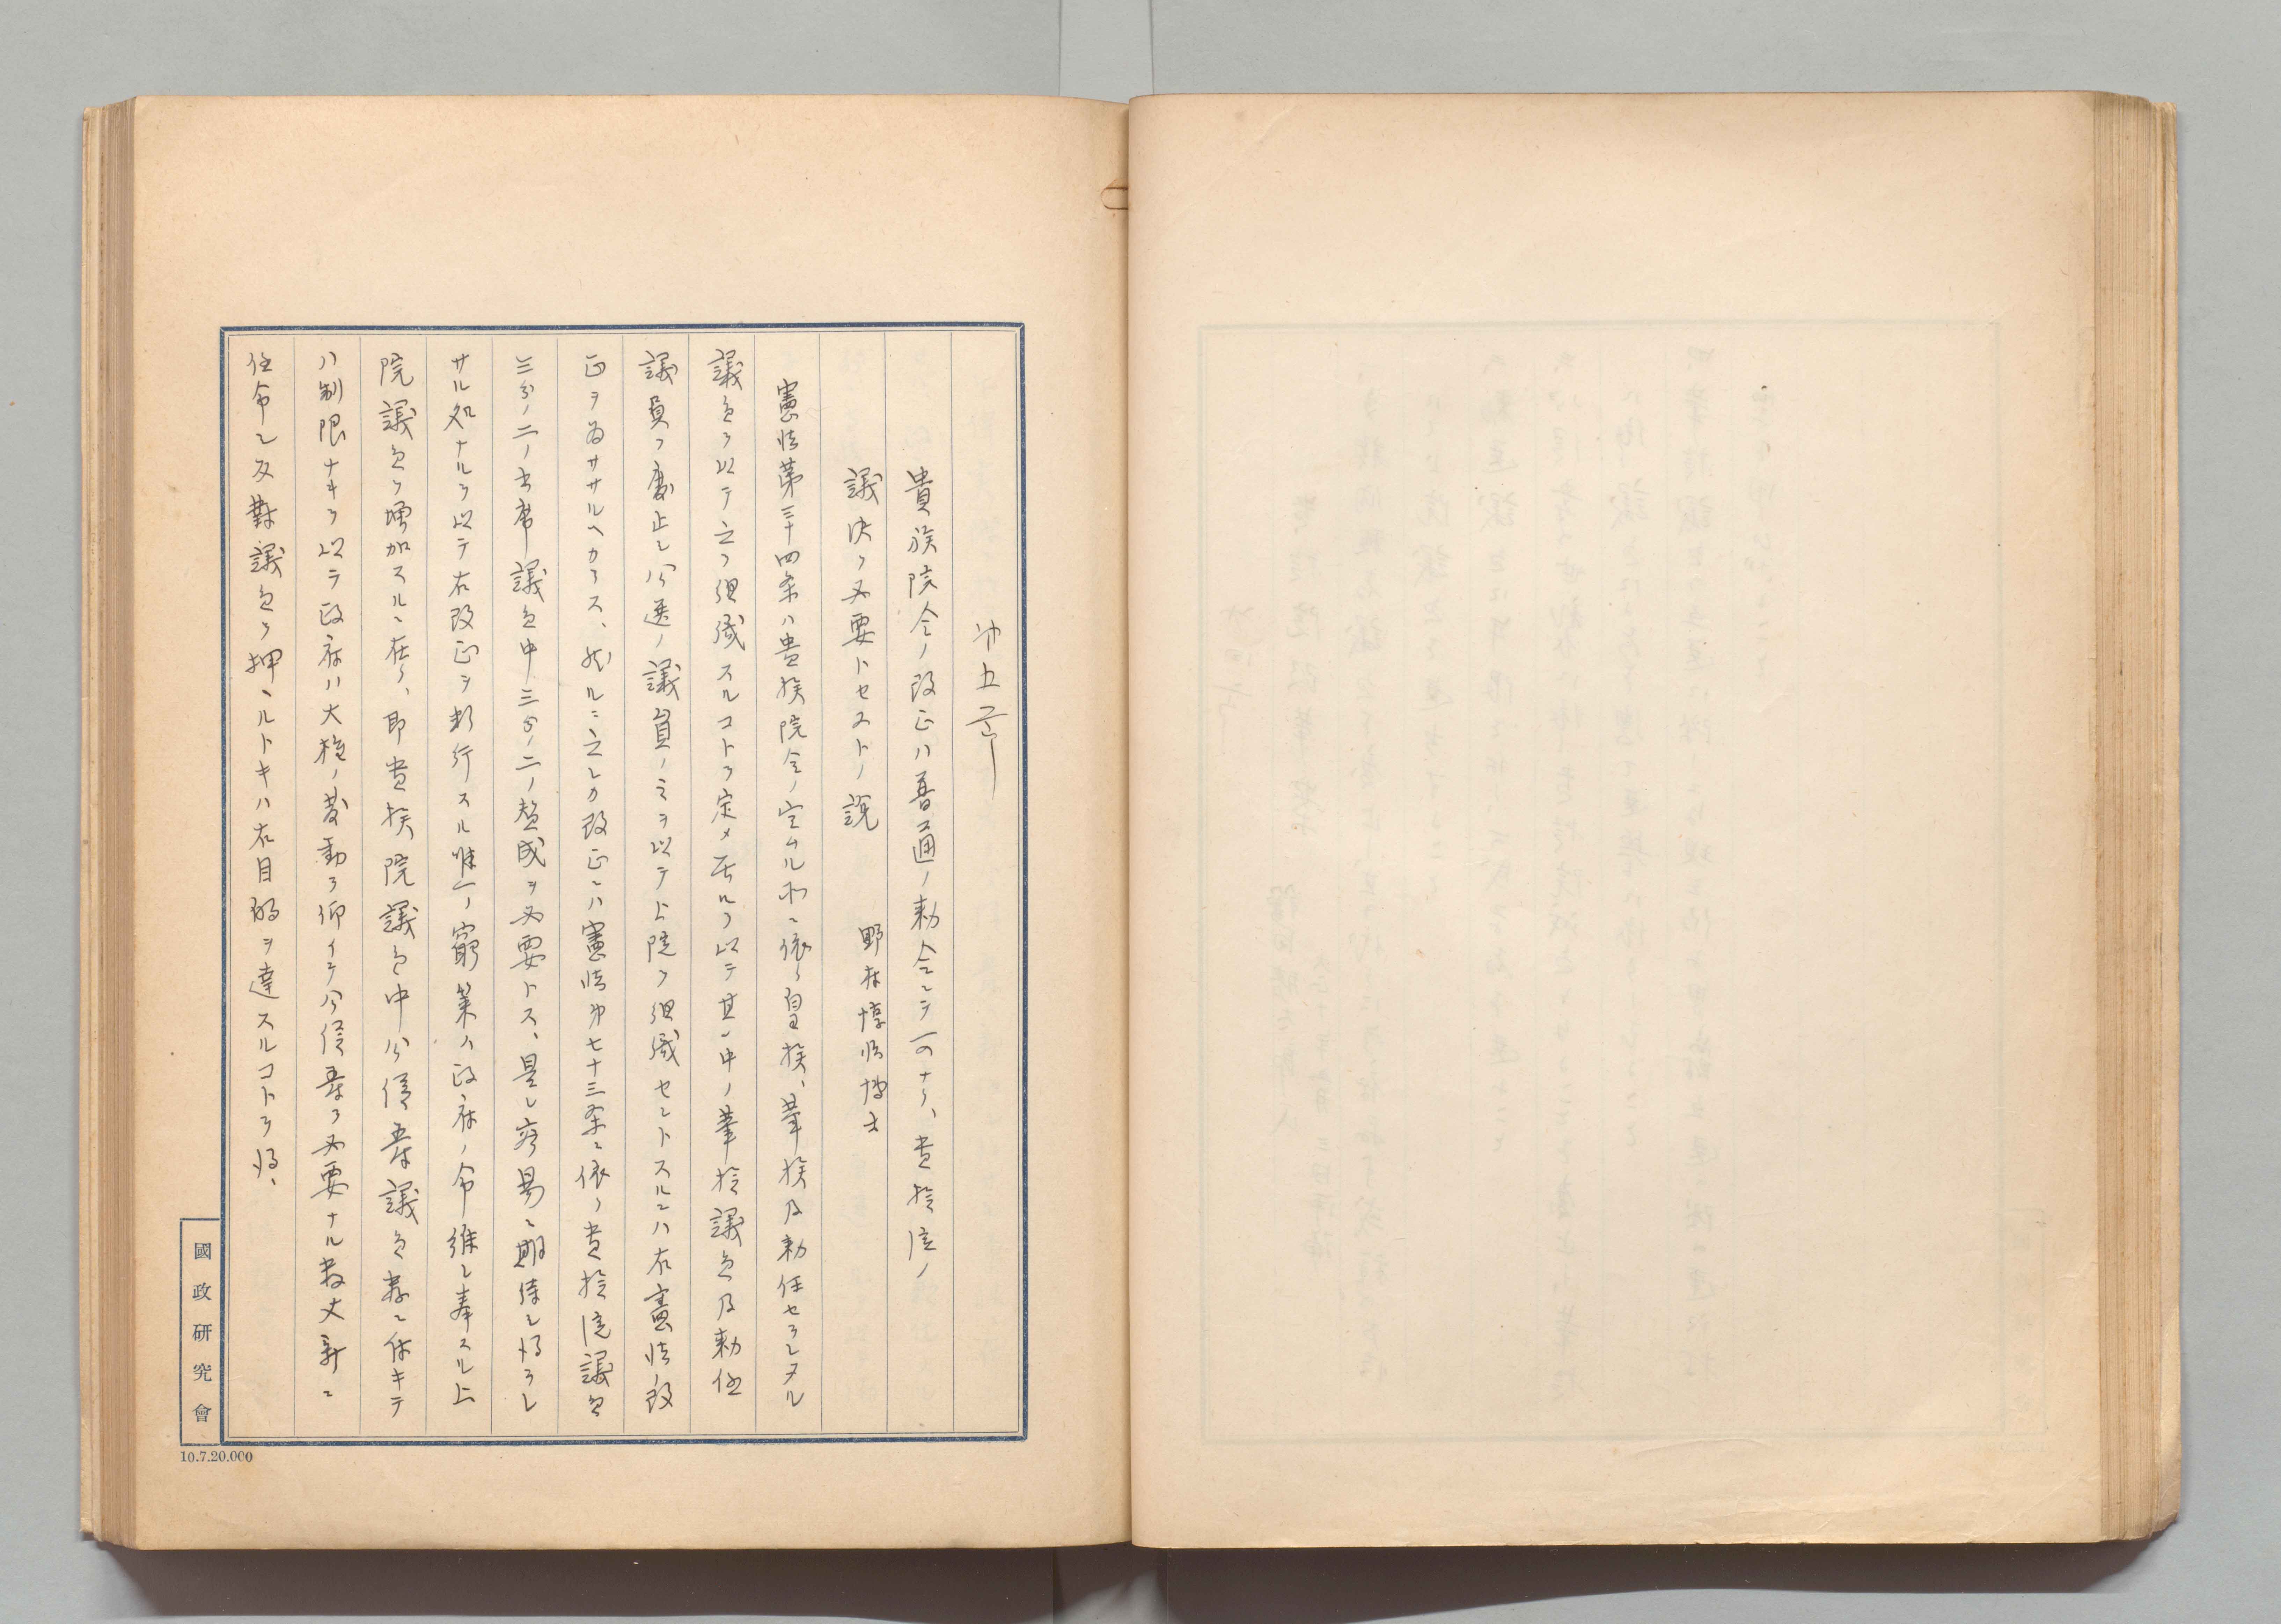 第五号
貴族院令ノ改正ハ普通ノ勅令ニテ可ナリ、貴族院ノ
議決ヲ必要トセストノ説
憲法第三十四条ハ貴族院令ノ定ムル所ニ依リ皇族、華族及勅任セラレタル
議員ヲ以テ之ヲ組織スルコトヲ定メ居ルヲ以テ其ノ中ノ華族議員及勅任
議員ヲ廃止シ公選ノ議員ノミヲ以テ上院ヲ組織セントスルニハ右憲法ノ改
正ヲ為ササルヘカラス、然ルニ之レカ改正ニハ憲法第七十三条ニ依リ貴族院議員
三分ノ二ノ出席議員中三分ノ二ノ賛成ヲ必要トス、是レ容易ニ期待シ得ラレ
サル処ナルヲ以テ右改正ヲ断行スル唯一ノ窮策ハ政府ノ命維レ奉スル上
院議員ヲ増加スルニ在リ、即貴族院議員中公侯爵議員数ニ付キテ
ハ制限ナキヲ以テ政府ハ大権ノ発動ヲ仰イテ公侯爵ヲ必要ナル数丈新ニ
任命シ反対議員ヲ押ヘルトキハ右目的ヲ達スルコトヲ得、
國政研究會
10.7.20.000